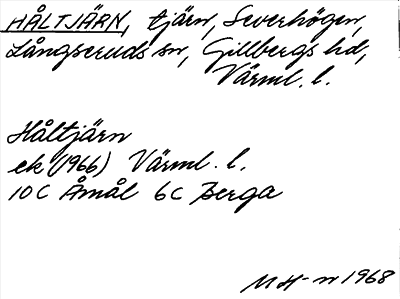 HÅLTJÄRN, tjärn, Severhögen,
Långseruds sn, Gillbergs hd,
Värml. l.
Håltjärn
ek (1966) Värml. l.
10C Åmål 6C Berga
MH-n 1968